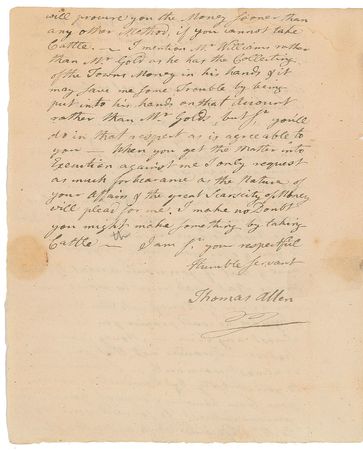 will procure you the Money sooner than
any other Method, if you cannot take
Cattle. — I mention Mr Williams rather
than Mr Gold as he has the Collecting
of the Towns Money in his hands & it
may save me some Trouble by being
put into his hands on that Account
rather than Mr Golds, but Sr you'll
do in that respect as is agreeable to
you — When you get the Matter into
Execution against me I only request
as much forbearance as the Nature of
your Affairs & the great Scarcity of Money
will plead for me. I make no Doubt
you might make something by taking
Cattle — I am Sr your respectful
Humble Servant
Thomas Allen